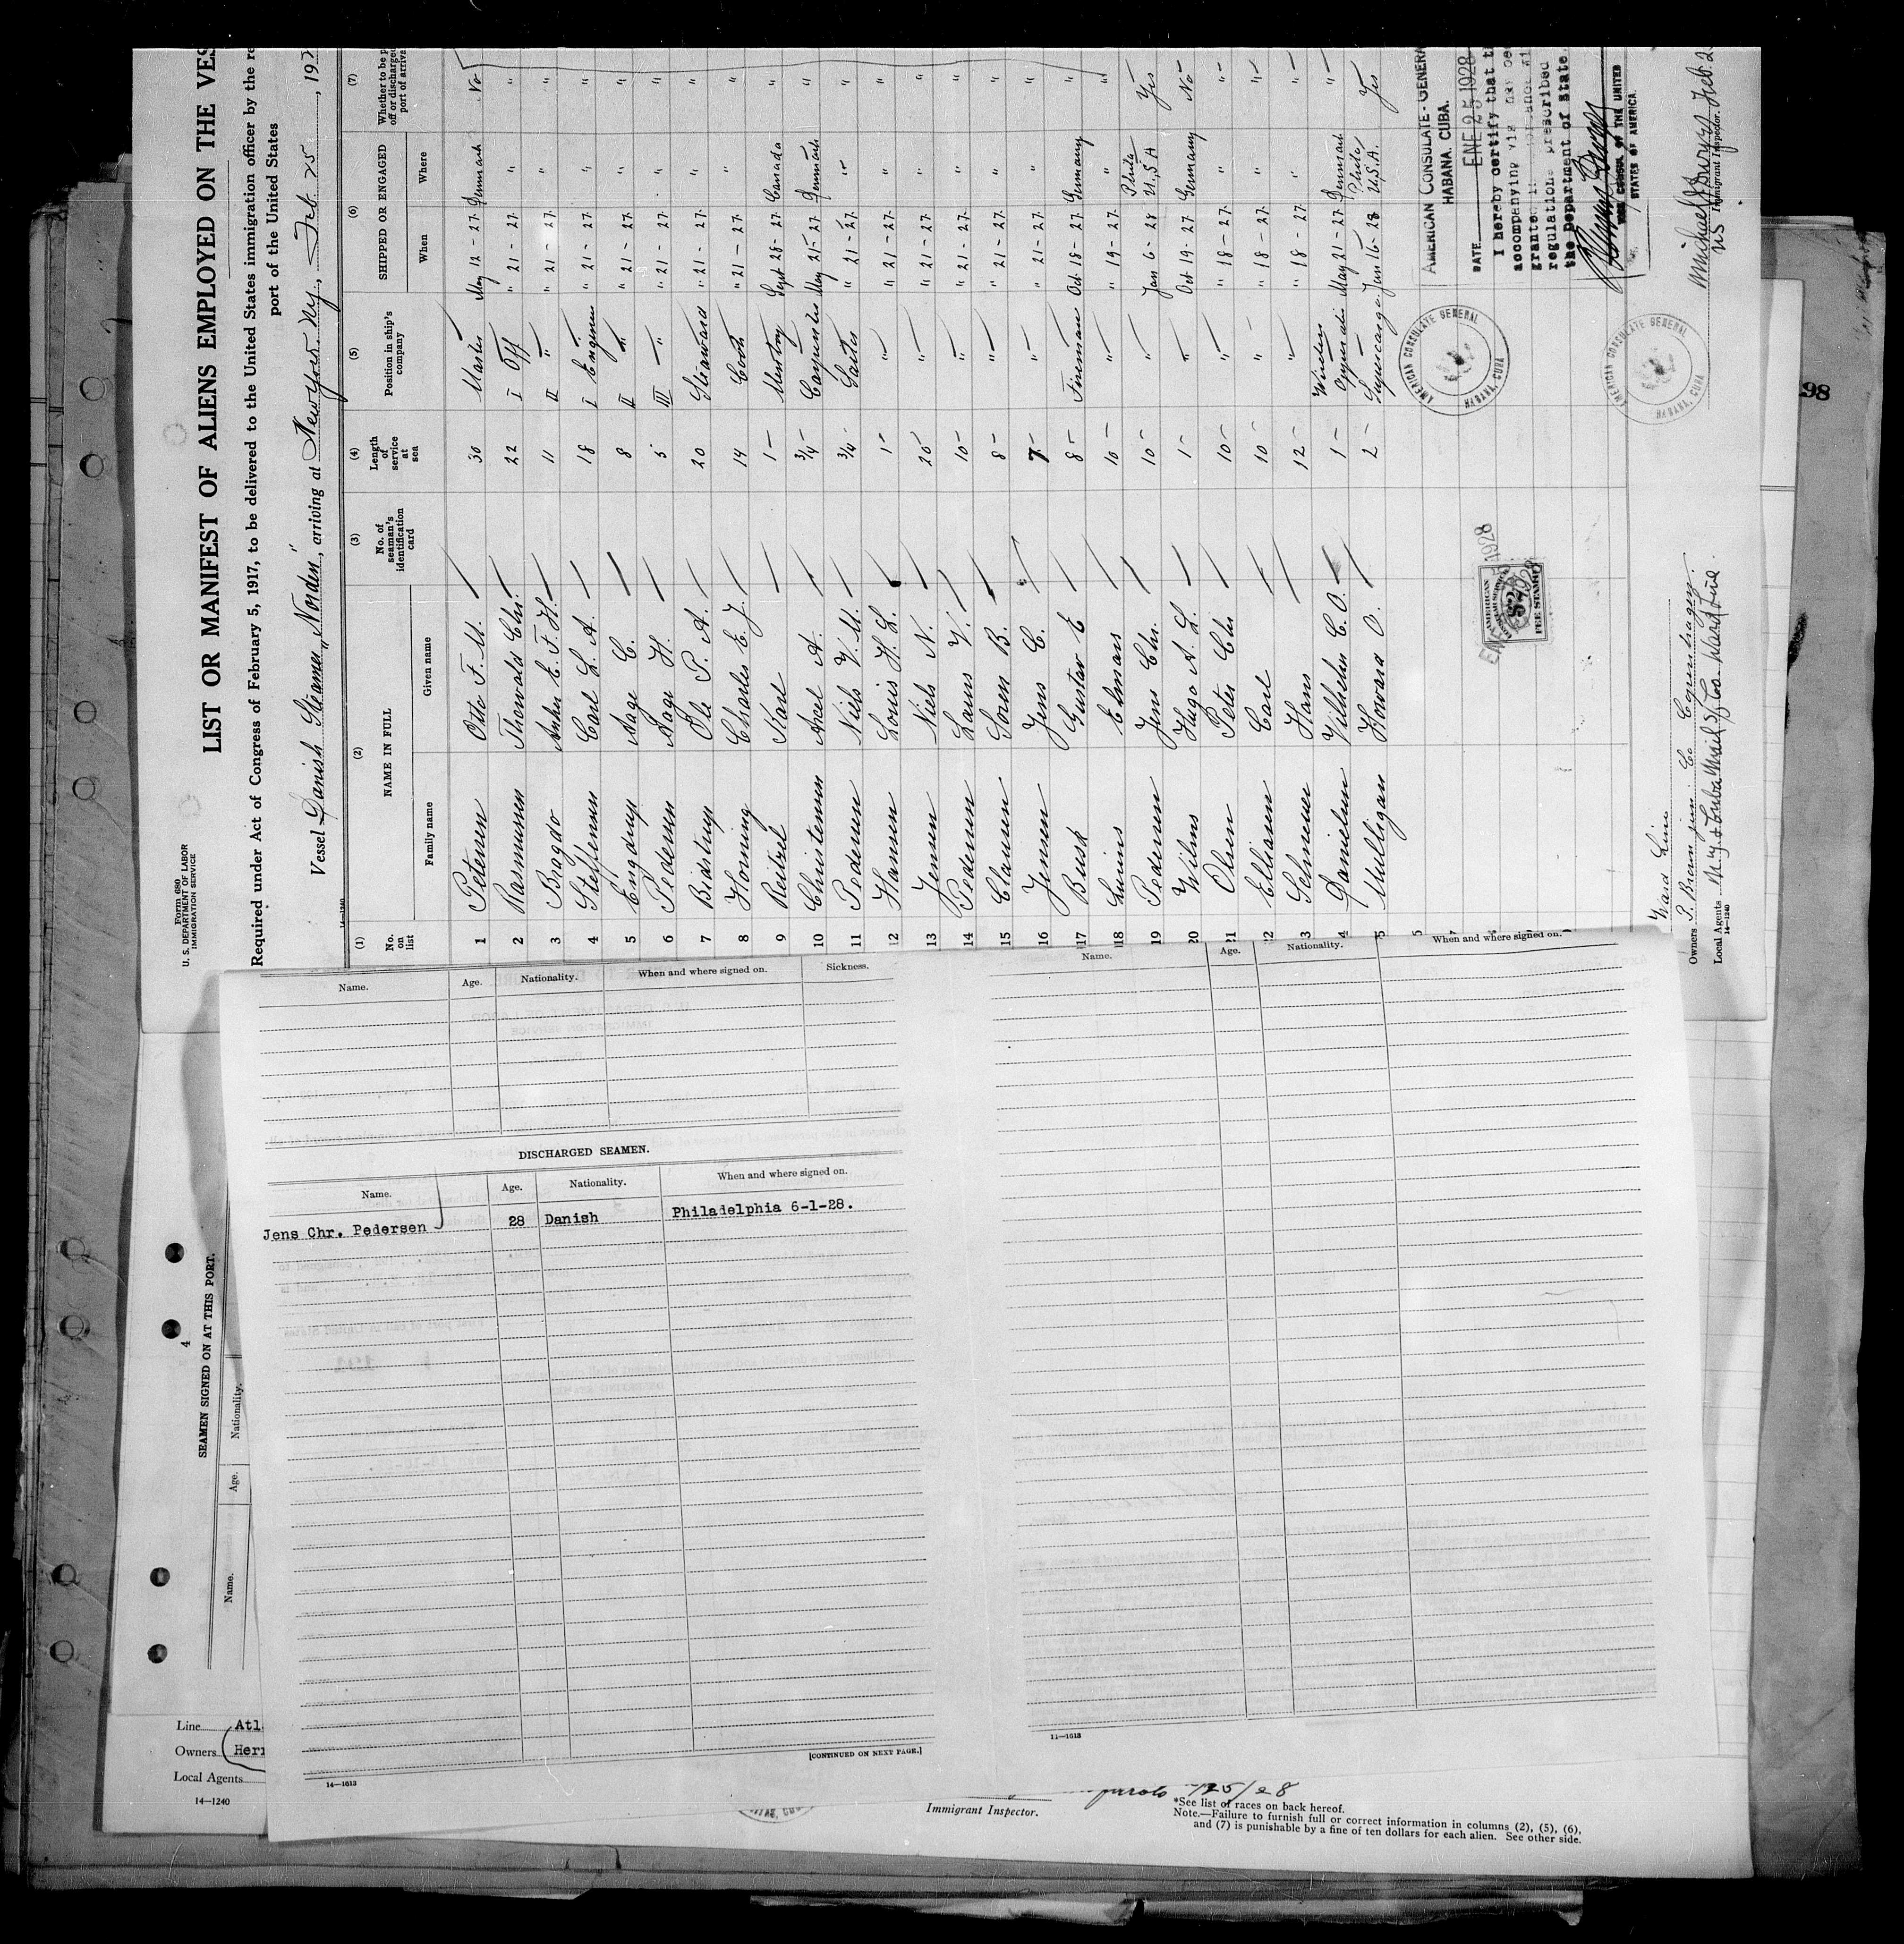 Form 680
U. S. DEPARTMENT OF LABOR
IMMIGRATION SERVICE
LIST OR MANIFEST OF ALIENS EMPLOYED ON THE VES
Required under Act of Congress of February 5, 1917, to be delivered to the United States immigration officer by the re
port of the United States
Vessel Danish Steamer „Norden", arriving at New York. Ny., Feb. 25, 192
14—1240
(1) (2) (3) (4) (5) (6) (7)
No. on list NAME IN FULL No. of seaman's identification card Length of service at sea Position in ship's company SHIPPED OR ENGAGED Whether to be p off or discharged port of arriva
Family name Given name When Where
1 Petersen Otto F. M. 30 Master May 12 - 27 Denmark No
2 Rasmussen Thorwald Chr. 22 I Off " 21 - 27 " "
3 Bragdo E. F. H. 11 II " " 21 - 27 " "
4 Steffensen Carl L. A. 18 I Engineer " 21 - 27 " "
5 Engdrup Aage C. 8 II " " 21 - 27 " "
6 Pedersen Aage H. 5 III " " 21 - 27 " "
7 Bidstrup Ole P. A. 20 Steaward " 21 - 27 " "
8 Horning Charles E. J. 14 Cook " 21 - 27 " "
9 Reitzel Karl 1 Messboy Sept 28 - 27 Canada "
10 Christensen Axel A. 3/4 Carpenter May 21 - 27 Denmark "
11 Pedersen Niels V. M. 3/4 Sailor " 21 - 27 " "
12 Hansen Louis H. L. 1 " " 21 - 27 " "
13 Jensen Niels N. 25 " " 21 - 27 " "
14 Pedersen Laurs V. 10 " " 21 - 27 " "
15 Clausen Soren B. 8 " " 21 - 27 " "
16 Jensen Jens C. 7 " " 21 - 27 " "
17 Busk Gustav E 8 Fireman Oct 18 - 27 Germany "
18 Elmars 10 " " 19 - 27 " "
19 Pedersen Jens Chr. 10 " Jan 6 - 28 Phila U.S.A Yes
20 Wilms Hugo A. L. 1 " Oct 19 - 27 Germany No
21 Olsen Peter Chr 10 " " 18 - 27 " "
2 Eliasen Carl 10 " " 18 - 27 " "
3 Hans 12 " " 18 - 27 " "
4 Danielsen Vilhelm C. O. 1 Wireless May 21 - 27 Denmark "
5 Mulligan Howard O. 2 Supercargo Jan 16 - 28 Phila, U.S.A. Yes
AMERICAN CONSULATE - GENERA
HABANA. CUBA.
DATE ENE 25 1928
I hereby certify that t
accompanying
regulations prescribed
the Department of State.
CONSUL OF THE UNITED
STATES OF AMERICA.
AMERICAN CONSULATE GENERAL
HABANA, CUBA
AMERICAN CONSULATE GENERAL
HABANA, CUBA
AMERICAN
$2
FEE STAMP
1928
Immigrant Inspector.
Ward Line
Owners
Local Agents N.Y. & Cuba Mail S/S Co. Ward Line.
14—1240
98
Name. Age. Nationality. When and where signed on. Sickness.
DISCHARGED SEAMEN.
Name. Age. Nationality. When and where signed on.
Jens Chr. Pedersen 28 Danish Philadelphia 6-1-28.
[CONTINUED ON NEXT PAGE.]
14—1613
Name. Age. Nationality. When and where signed on.
11—1613
4
SEAMEN SIGNED ON AT THIS PORT.
Name. Age. Nationality.
Line Atl
Owners Herr
Local Agents
14—1240
Immigrant Inspector.
*See list of races on back hereof.
Note.—Failure to furnish full or correct information in columns (2), (5), (6),
and (7) is punishable by a fine of ten dollars for each alien. See other side.